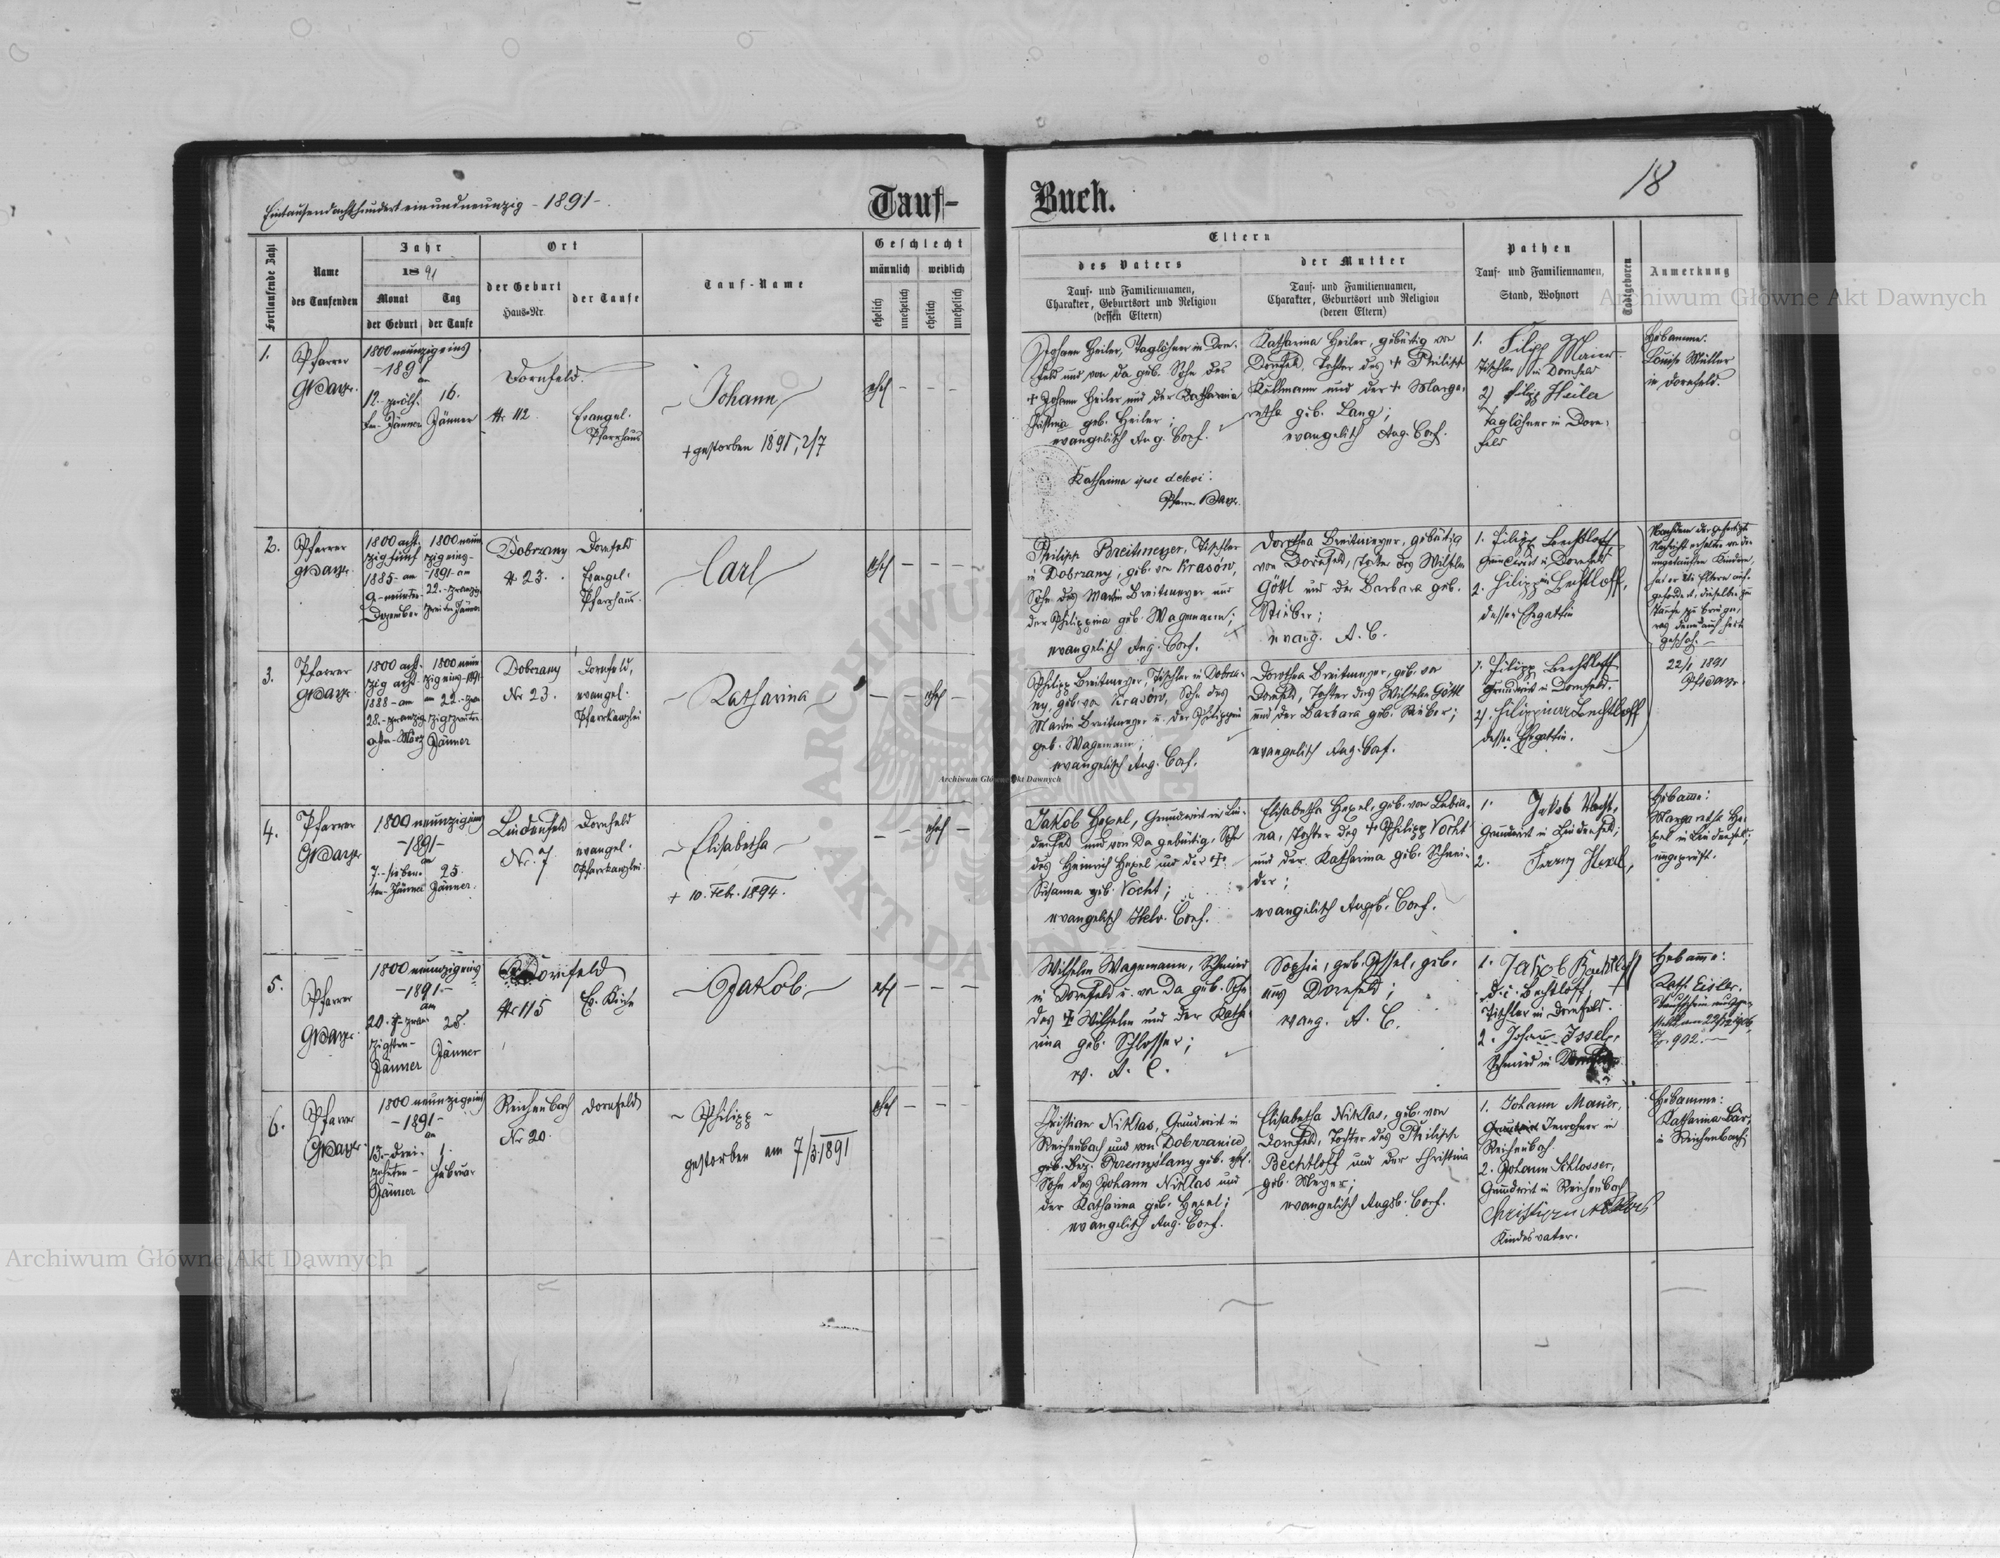 Eintausendachthundert einundneunzig - 1891 -
Tauf-
Buch.
18
Fortlaufende Zahl
Name
des Taufenden
Jahr
18 91
Monat
Tag
der Geburt
der Taufe
Ort
der Geburt
Haus-Nr.
der Taufe
Tauf-Name
Geschlecht
männlich
weiblich
ehelich
unehelich
ehelich
unehelich
Eltern
des Vaters
Tauf- und Familiennamen,
Charakter, Geburtsort und Religion
(dessen Eltern)
der Mutter
Tauf- und Familiennamen,
Charakter, Geburtsort und Religion
(deren Eltern)
Pathen
Tauf- und Familiennamen,
Stand, Wohnort
Todtgeboren
Anmerkung
1.
Pfarrer
1800 neunzigeins
- 1891
am
12. zwölf-
ten Jänner
16.
Jänner
Dornfeld.
Nr 112
Evangel.
Pfarrhaus
Johann
+ gestorben 1891, 2/7
ehel - - -
Johann Heiler, Taglöhner in Dorn-
feld und von da geb. Sohn des
+ Johann Heiler und der Katharina
geb. Heiler;
evangelisch Aug. Conf.
Katharina ipse delevi:
Pfarrer
Katharina Heiler, gebürtig von
Dornfeld, Tochter des + Philipp
Kullmann und der + Marga-
retha geb. Lang;
evangelisch Aug. Conf.
1. Filipp
Tischler in Dornfeld
2) Filipp Heiler
Taglöhner in Dorn-
feld
Hebamme:
Louise Müller
in Dornfeld.
2.
Pfarrer
1800 acht-
zig fünf
1885 - am
9. neunten
Dezember
1800 neun
zig eins -
- 1891 - am
22. - zwanzig
zweiten Jänner
Dobrzany
Nr 23.
Dornfeld
Evangel.
Pfarrhaus
Carl
ehel - - -
Philipp Breitmeyer, Tischler
in Dobrzany, geb. von Krasów,
Sohn des Martin Breitmeyer und
der Philippina geb. Wagemann;
evangelisch Aug. Conf.
Dorothea Breitmeyer, gebürtig
von Dornfeld, Tochter des Wilhelm
Göttl und der Barbara geb.
Stieber;
evang. A. C.
1. Filipp Bechtloff
Grundwirt in Dornfeld
2. Filippina Bechtloff,
dessen Ehegattin
Nachdem der Gefertigte
Nachricht erhalten von den
ungetauften Kindern,
hat er die Eltern auf-
gefordert, dieselben zur
Taufe zu bringen,
was denn auch heute
geschah. -
22/1 1891
3.
Pfarrer
1800 acht-
zig acht-
1888 - am
28. - zwanzig
achten - März
1800 neun
zig eins - 1891
am 22. - zwan
zigzweiten
Jänner
Dobrzany
Nr 23.
Dornfeld,
evangel.
Pfarrkanzlei
- Katharina -
- - ehel -
Philipp Breitmeyer, Tischler in Dobrza-
ny, geb. von Krasów, Sohn des
Martin Breitmeyer u. der Philippina
geb. Wagemann;
evangelisch Aug. Conf.
Dorothea Breitmeyer, geb. von
Dornfeld, Tochter des Wilhelm Göttl
und der Barbara geb. Stieber;
evangelisch Aug. Conf.
1. Filipp Bechtloff
Grundwirt in Dornfeld.
2) Filippina Bechtloff
dessen Ehegattin.
4.
Pfarrer
1800 neunzigeins
- 1891 -
am
7. - sieben-
ten Jänner
25.
Jänner.
Lindenfeld
Nr. 7
Dornfeld
evangel.
Pfarrkanzlei
- Elisabetha -
+ 10. Feb. 1894.
- - ehel -
Jakob Hexel, Grundwirt in Lin-
denfeld und von da gebürtig, Sohn
des Heinrich Hexel und der +
Susanna geb. Vocht;
evangelisch Helv. Conf.
Elisabetha Hexel, geb. von
na, Tochter des + Philipp Vocht
und der Katharina geb. Schnei-
der;
evangelisch Augsb. Conf.
1. Jakob Vocht,
Grundwirt in Lindenfeld;
2. Hexel,
Hebamme:
Margaretha He-
xel in Lindenfeld,
ungeprüft.
5.
Pfarrer
1800 neunzigeins
- 1891. -
am
20. - zwan-
zigsten -
Jänner
25.
Jänner
Dornfeld
Nr 115
Ev. Kirche
- Jakob -
ehel - - -
Wilhelm Wagemann, Schmied
in Dornfeld u. von da geb. Sohn
des + Wilhelm und der Katha-
rina geb. Schlosser;
ev. A. C.
Sophia, geb. Issel, geb.
aus Dornfeld;
evang. A. C.
1. Jakob
d. i. Bechtloff,
Tischler in Dornfeld.
2. Johann Issel,
Schmied in Dornfeld
Hebamme:
Kath. Eisler.
902. -
6.
Pfarrer
1800 neunzigeins
- 1891 -
am
13. - drei-
zehnten -
Jänner
1.
Februar
Reichenbach
Nr 20.
Dornfeld
- Philipp -
gestorben am 7/3 1891
ehel - - -
Christian Niklas, Grundwirt in
Reichenbach und von Dobrzanica
geb. Bez. Przemyslany geb. ehel.
Sohn des Johann Niklas und
der Katharina geb. Hexel;
evangelisch Aug. Conf.
Elisabetha Niklas, geb. von
Dornfeld, Tochter des Philipp
Bechtloff und der Christina
geb. Meyer;
evangelisch Augsb. Conf.
1. Johann Mauer,
Inwohner in
Reichenbach
2. Johann Schlosser,
Grundwirt in Reichenbach
Christian Niklas
Kindesvater.
Hebamme:
Katharina Bär,
in Reichenbach
Archiwum Główne Akt Dawnych
Archiwum Główne Akt Dawnych
Archiwum Główne Akt Dawnych